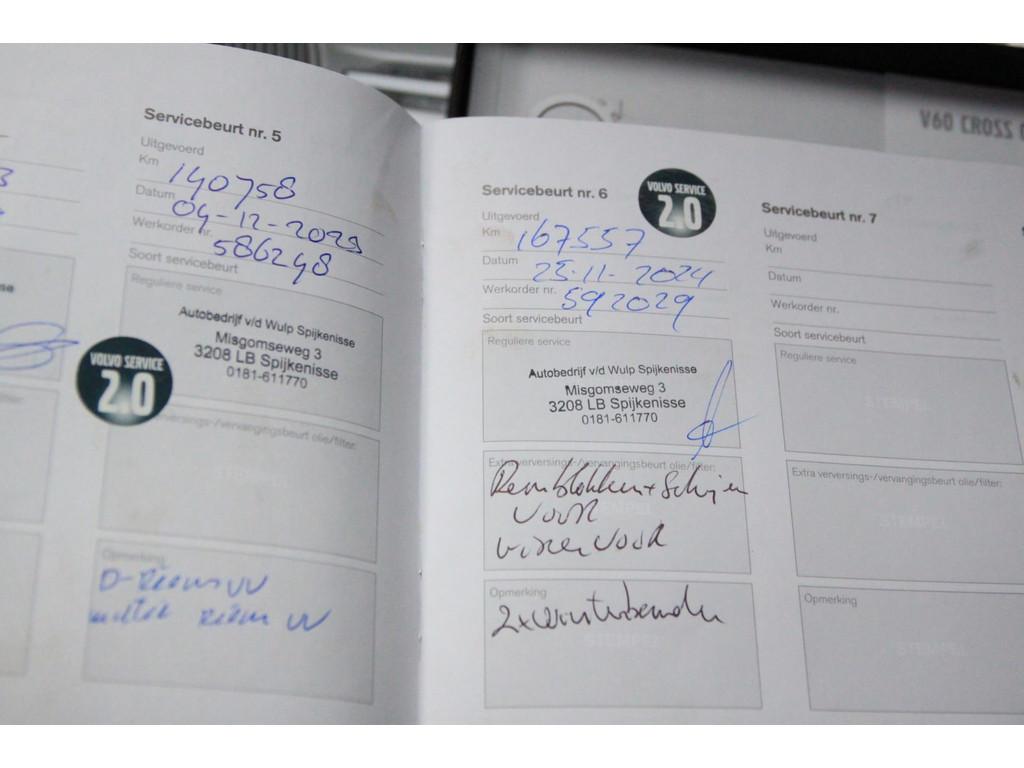 Servicebeurt nr. 5
Uitgevoerd
Km 140758
Datum 04-12-2023
Werkorder nr. 586248
Soort servicebeurt
Reguliere service
Autobedrijf v/d Wulp Spijkenisse
Misgomseweg 3
3208 LB Spijkenisse
0181-611770
VOLVO SERVICE
2.0
versings-/vervangingsbeurt olie/filter:
Opmerking
D-Riem VV
Riem VV
V60 CROSS
Servicebeurt nr. 6
VOLVO SERVICE
2.0
Uitgevoerd
Km 167557
Datum 25-11-2024
Werkorder nr. 592029
Soort servicebeurt
Reguliere service
Autobedrijf v/d Wulp Spijkenisse
Misgomseweg 3
3208 LB Spijkenisse
0181-611770
Extra verversings-/vervangingsbeurt olie/filter:
Remblokken + Schijven
voor
STEMPEL
voor
Opmerking
2x winterbanden
STEMPEL
Servicebeurt nr. 7
Uitgevoerd
Km
Datum
Werkorder nr.
Soort servicebeurt
Reguliere service
STEMPEL
Extra verversings-/vervangingsbeurt olie/filter:
STEMPEL
Opmerking
STEMPEL